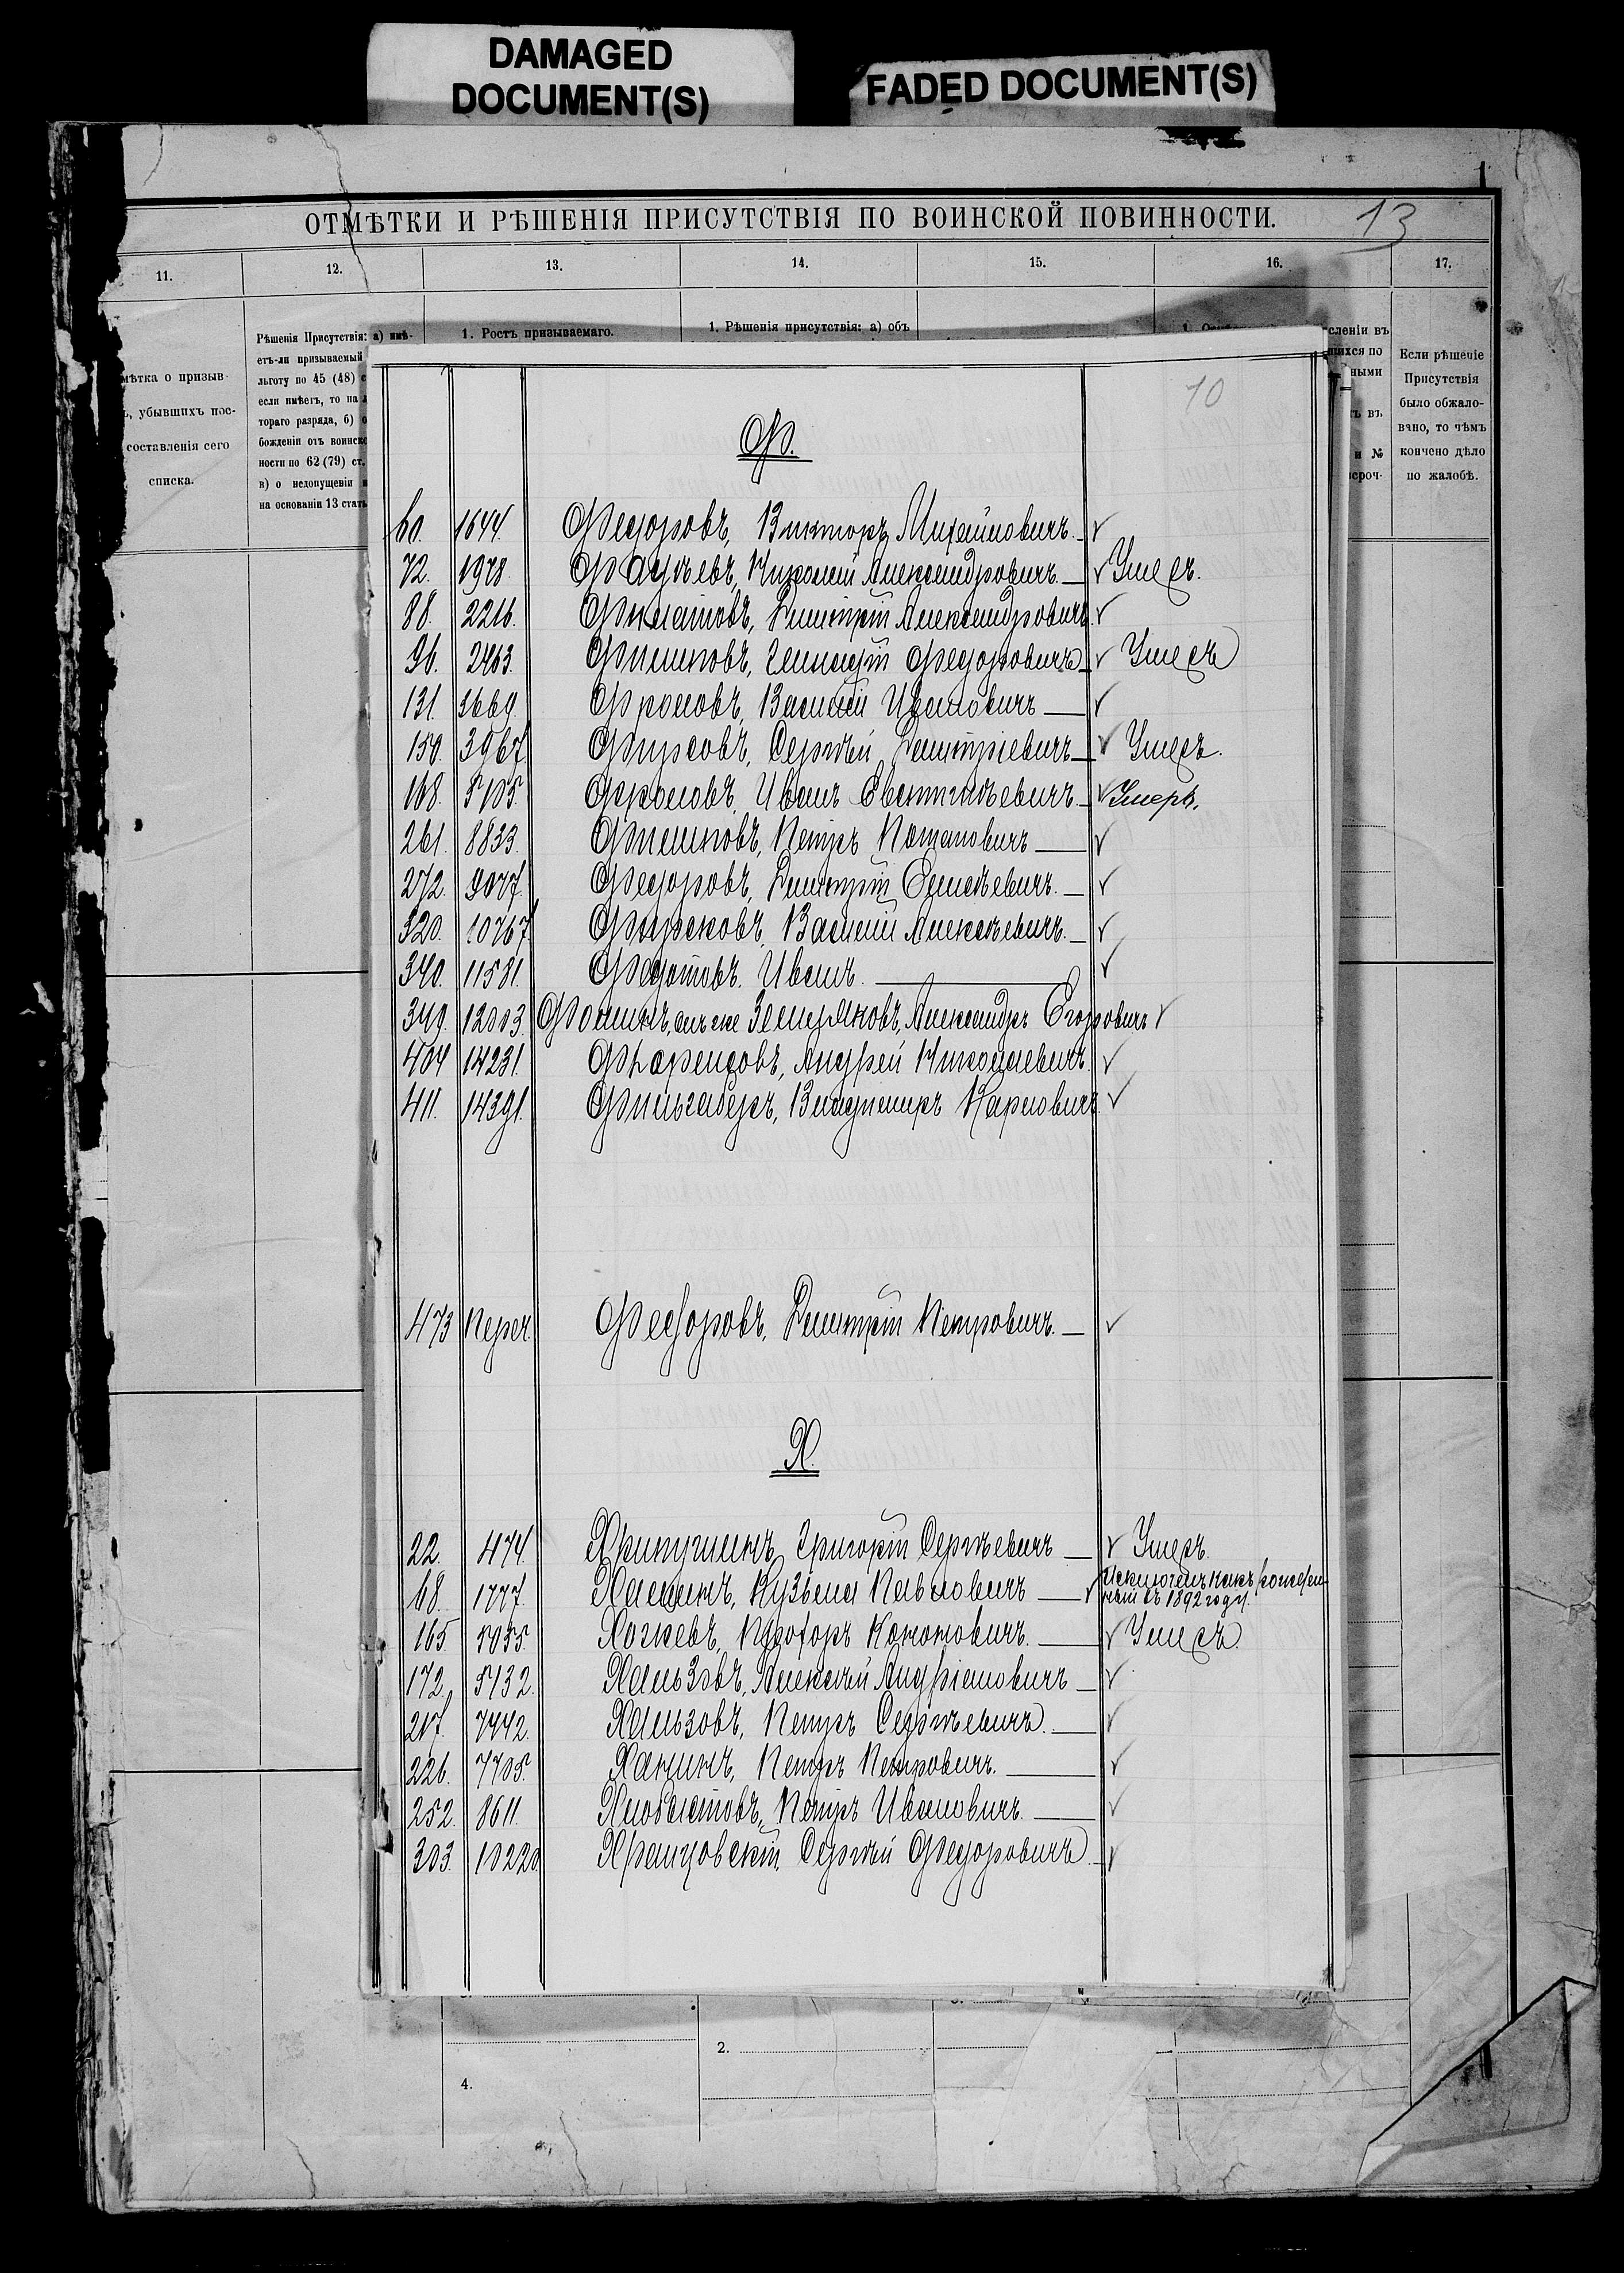 DAMAGED
DOCUMENT(S)
FADED DOCUMENT(S)
ОТМѢТКИ И РѢШЕНІЯ ПРИСУТСТВІЯ ПО ВОИНСКОЙ ПОВИННОСТИ.
13
11. 12. 13. 14. 15. 16. 17.
мѣтка о призыв
ъ, убывшихъ пос-
составленія сего
списка.
Рѣшенія Присутствія: а) имѣ-
етъ-ли призываемый
льготу по 45 (48) с
если имѣетъ, то на
тораго разряда, б) о
божденіи отъ воинско
ности по 62 (79) ст.
в) о недопущеніи
на основаніи 13 стать
1. Ростъ призываемаго.
1. Рѣшенія присутствія: а) объ
сленіи въ
щихся по
ными
ть въ
и №
сроч-
Если рѣшеніе
Присутствія
было обжало-
вано, то чѣмъ
кончено дѣло
по жалобѣ.
10
Ф.
60. 1644. Федоровъ, Викторъ Михайловичъ. ✓
72. 1978. Фадѣевъ, Николай Александровичъ. — ✓ Умеръ.
88. 2216. Филатовъ, Дмитрій Александровичъ. ✓
96. 2463. Филипповъ, Геннадій Федоровичъ ✓ Умеръ
131. 3669. Фроловъ, Василій Ивановичъ — ✓
150. 3967. Фирсовъ, Сергѣй Дмитріевичъ — ✓ Умеръ.
168. 5105. Фроловъ, Иванъ Евстигнѣевичъ. ✓ Умеръ.
261. 8833. Филипповъ, Петръ Потаповичъ — ✓
272. 9077. Федоровъ, Дмитрій Елисѣевичъ. — ✓
320. 10767. Фирсковъ, Василій Алексѣевичъ. — ✓
340. 11581. Федотовъ. Иванъ. — ✓
349. 12003. Фоминъ, онъ же Земляковъ, Александръ Егоровичъ ✓
404 14231. Фларенсовъ, Андрей Николаевичъ. ✓
411. 14391. Фильгаберъ, Владимиръ Карловичъ ✓
473 Переч. Федоровъ, Дмитрій Петровичъ. — ✓
Х.
22. 474. Хрипушинъ, Григорій Сергѣевичъ — ✓ Умеръ.
68. 1777. Халинъ, Кузьма Павловичъ — ✓ Исключенъ какъ рожден-
ный въ 1892 году.
165. 5055. Хожевъ, Никофоръ Кононовичъ. — ✓ Умеръ.
172. 5132. Хальзовъ, Алексѣй Андріановичъ — ✓
217. 7442. Хальзовъ, Петръ Сергѣевичъ. — ✓
226. 7705. Ханинъ, Петръ Петровичъ. — ✓
252. 8611. Хлобыстовъ, Петръ Ивановичъ. — ✓
303. 10220 Хранцовскій, Сергѣй Федоровичъ. ✓
2.
4.